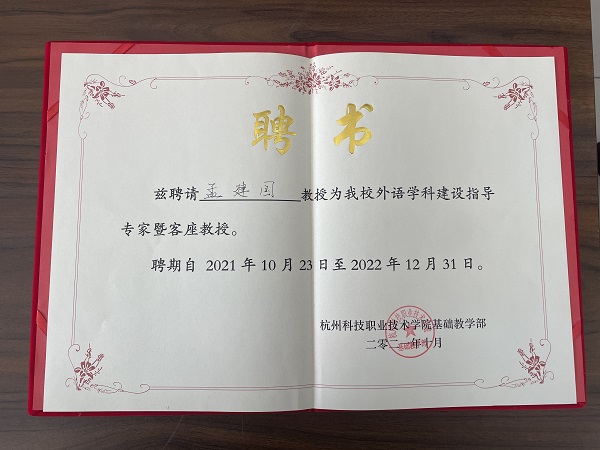 聘书
兹聘请孟建国教授为我校外语学科建设指导
专家暨客座教授。
聘期自 2021 年 10 月 23 日至 2022 年 12 月 31 日。
杭州科技职业技术学院基础教学部
二零二一年十月